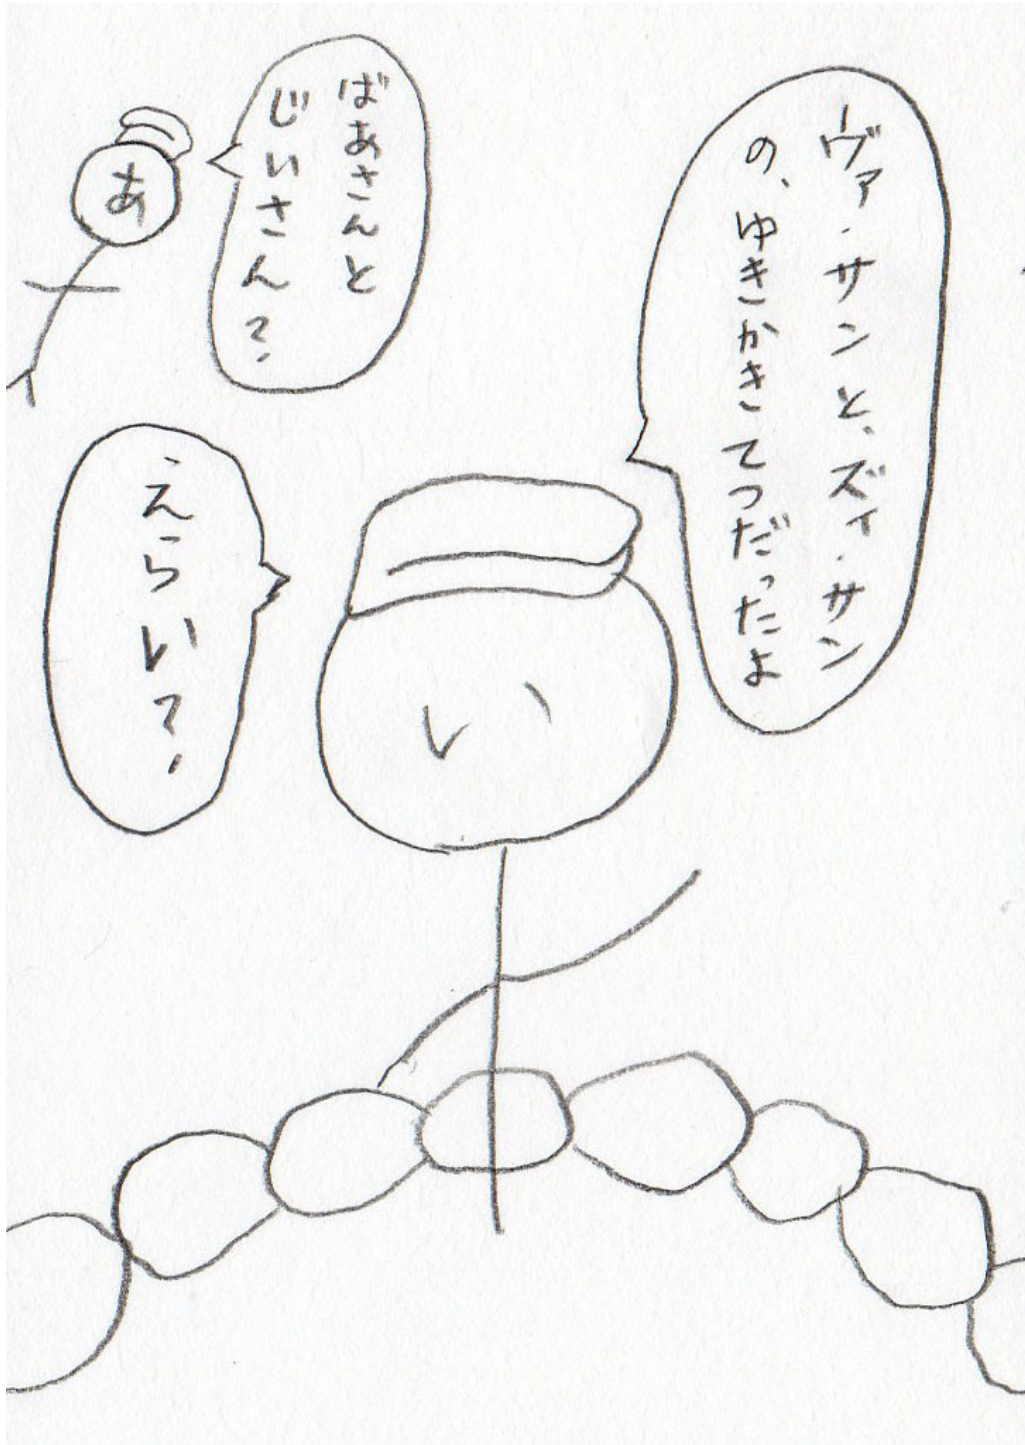 ヴァ・サンと、ズィ・サン
の、ゆきかきてつだったよ
ばあさんと
じいさん?
あ
えらい?
い